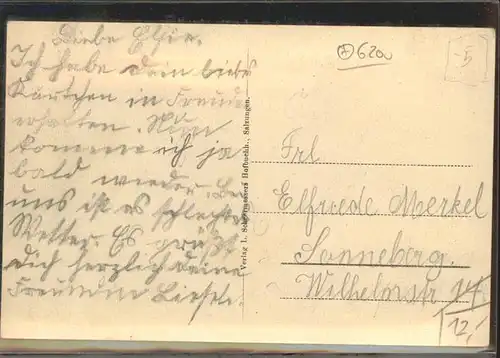 Liebe Elfie.
Ich habe dein liebes
Kärtchen in Freude
erhalten. Nun
komme ich ja
bald wieder. Bei
uns ist es schlechtes
Wetter. Es grüßt
Dich herzlich deine
Freundin Liesel.
Verlag L. Hofbuchh., Salzungen.
620
5
Frl
Elfriede Merkel
Sonneberg.
Wilhelmstr 14
12,-